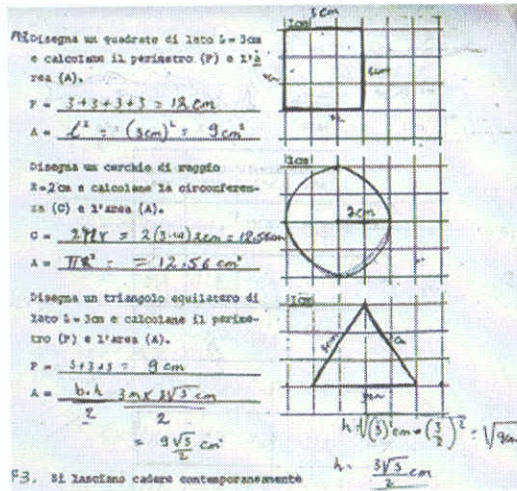 3 cm
1cm
Disegna un quadrato di lato L=3cm
e calcolane il perimetro (P) e l'a
rea (A).
6cm
P = 3+3+3+3 = 12 cm
A = l² = (3cm)² = 9cm²
Disegna un cerchio di raggio
R=2cm e calcolane la circonferen-
za (C) e l'area (A).
1cm
2cm
C = 2πr = 2(3.14)2cm = 12.56cm
A = πR² = = 12.56 cm²
Disegna un triangolo equilatero di
lato L=3cm e calcolane il perime-
tro (P) e l'area (A).
1cm
3cm
P = 3+3+3 = 9 cm
A = b.h/2
2
= 9√3/2 cm²
h = 3√3/2 cm
F3. Si lasciano cadere contemporaneamente